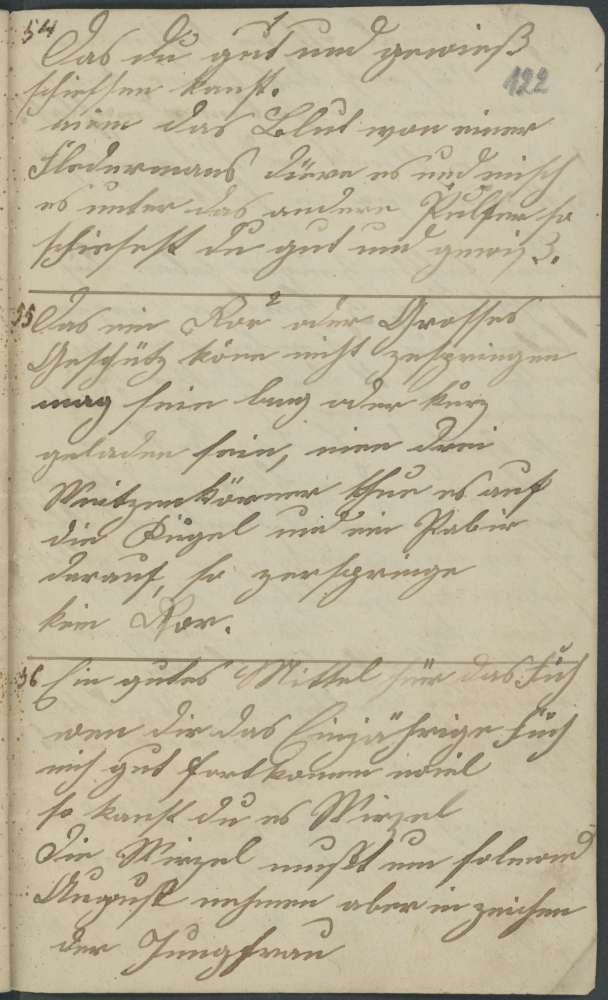 54
1
Das du gut und gewieß
122
schiessen kanst.
niem das Blut von einer
Fledermaus dürre es und misch
es unter das andere Pulfer so
schiesest du gut und gewiß.
55
2
Das ein Ror oder Grosses
Geschütz köne nicht zespringen
mag sein lang oder kurz
geladen sein, niem drei
Weitzenkörner thue es auf
die Kugel und ein Pabir
darauf, so zerspringe
kein Ror.
56 Ein gutes Mittel für das
wen dir das Einjährige
nich gut fortkomen wiel
so kanst du es
Die must um
August nehmen aber in zeichen
der Jungfrau